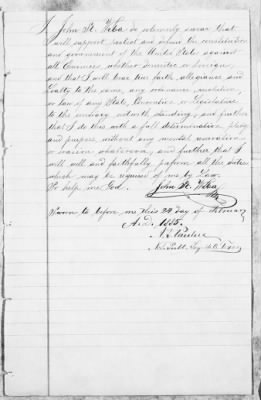 I, John H. do solemnly swear that
I will support, protect and defend the constitution
and government of the United States against
all Enemies, whether domestic or foreign,
and that I will bear true faith, allegiance and
Loyalty to the same, any ordinance, resolution,
or law of any State, Convention, or Legislature
to the contrary notwith standing; and further
that I do this with a full determination, pledge
and purpose, without any mental reservation
or evasion whatsoever, and further that I
will well and faithfully perform all the duties
which may be required of me by Law.
So help me God. John H.
Sworn to before me this 24 day of February
A.D. 1865.